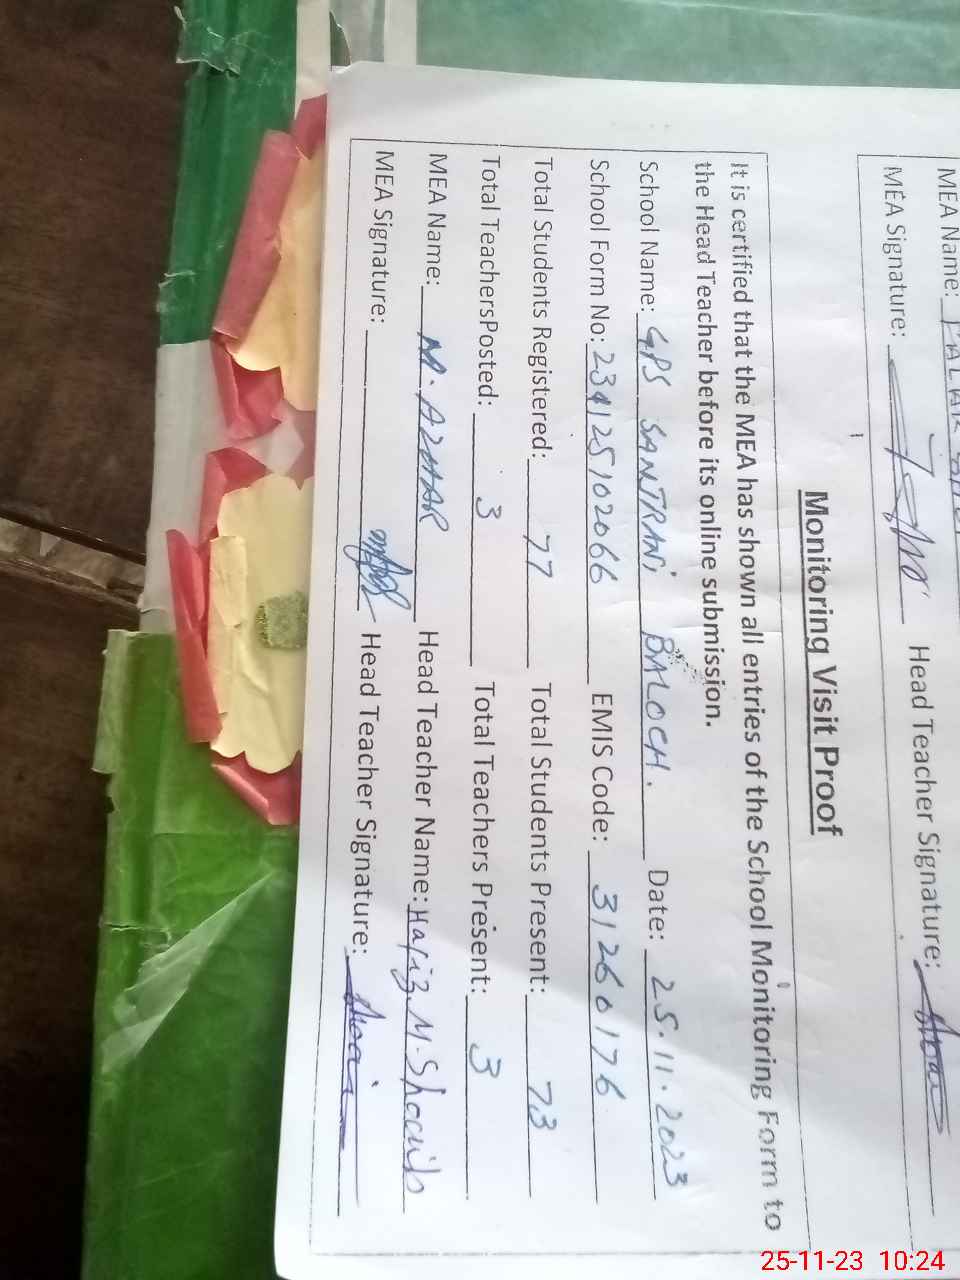 MEA Name:
MEA Signature: Head Teacher Signature:
Monitoring Visit Proof
It is certified that the MEA has shown all entries of the School Monitoring Form to
the Head Teacher before its online submission.
School Name: GPS SANTRANi BALOCH. Date: 25.11.2023
School Form No: 234125102066 EMIS Code: 31260176
Total Students Registered: 77 Total Students Present: 73
Total TeachersPosted: 3 Total Teachers Present: 3
MEA Name: M. AZHAR Head Teacher Name: Hafiz M. Shoaib
MEA Signature: Head Teacher Signature:
25-11-23 10:24